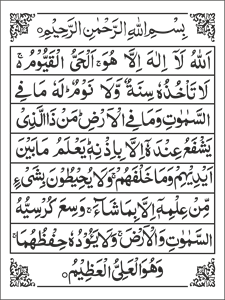 بِسْمِ اللهِ الرَّحْمٰنِ الرَّحِيْمِ
اَللهُ لَآ اِلٰهَ اِلَّا هُوَ ۚ اَلْحَيُّ الْقَيُّوْمُ ۚ
لَا تَاْخُذُهٗ سِنَةٌ وَّلَا نَوْمٌ ؕ لَهٗ مَا فِي
السَّمٰوٰتِ وَمَا فِي الْاَرْضِ ؕ مَنْ ذَا الَّذِيْ
يَشْفَعُ عِنْدَهٗٓ اِلَّا بِاِذْنِهٖ ؕ يَعْلَمُ مَا بَيْنَ
اَيْدِيْهِمْ وَمَا خَلْفَهُمْ ۚ وَلَا يُحِيْطُوْنَ بِشَيْءٍ
مِّنْ عِلْمِهٖٓ اِلَّا بِمَا شَآءَ ۚ وَسِعَ كُرْسِيُّهُ
السَّمٰوٰتِ وَالْاَرْضَ ۚ وَلَا يَـُٔوْدُهٗ حِفْظُهُمَا ۚ
وَهُوَ الْعَلِيُّ الْعَظِيْمُ